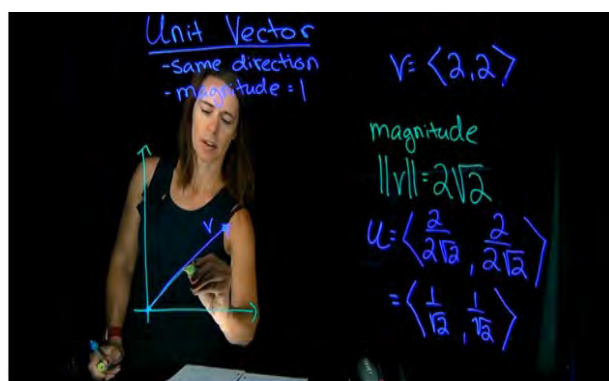 Unit Vector
-same direction
-magnitude = 1
V
V = ⟨2,2⟩
magnitude
||v|| = 2√2
u = ⟨2/2√2, 2/2√2⟩
= ⟨1/√2, 1/√2⟩